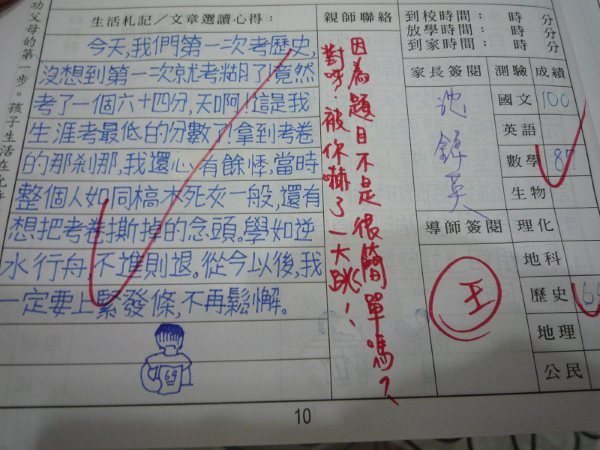 功父母的第一步。孩子生活在
生活札記／文章選讀心得：
今天,我們第一次考歷史,
沒想到第一次就考糊了!竟然
考了一個六十四分,天啊!這是我
生涯考最低的分數了!拿到考卷
的那剎那,我還心有餘悸,當時
整個人如同槁木死灰一般,還有
想把考卷撕掉的念頭。學如逆
水行舟,不進則退,從今以後,我
一定要上緊發條,不再鬆懈。
64
親師聯絡
因為題目不是很簡單嗎?
對呀!被你嚇了一大跳!
到校時間： 時 分
放學時間： 時 分
到家時間： 時 分
家長簽閱 測驗 成績
國文 100
英語
數學 87
生物
導師簽閱 理化
地科
王
歷史 64
地理
公民
10